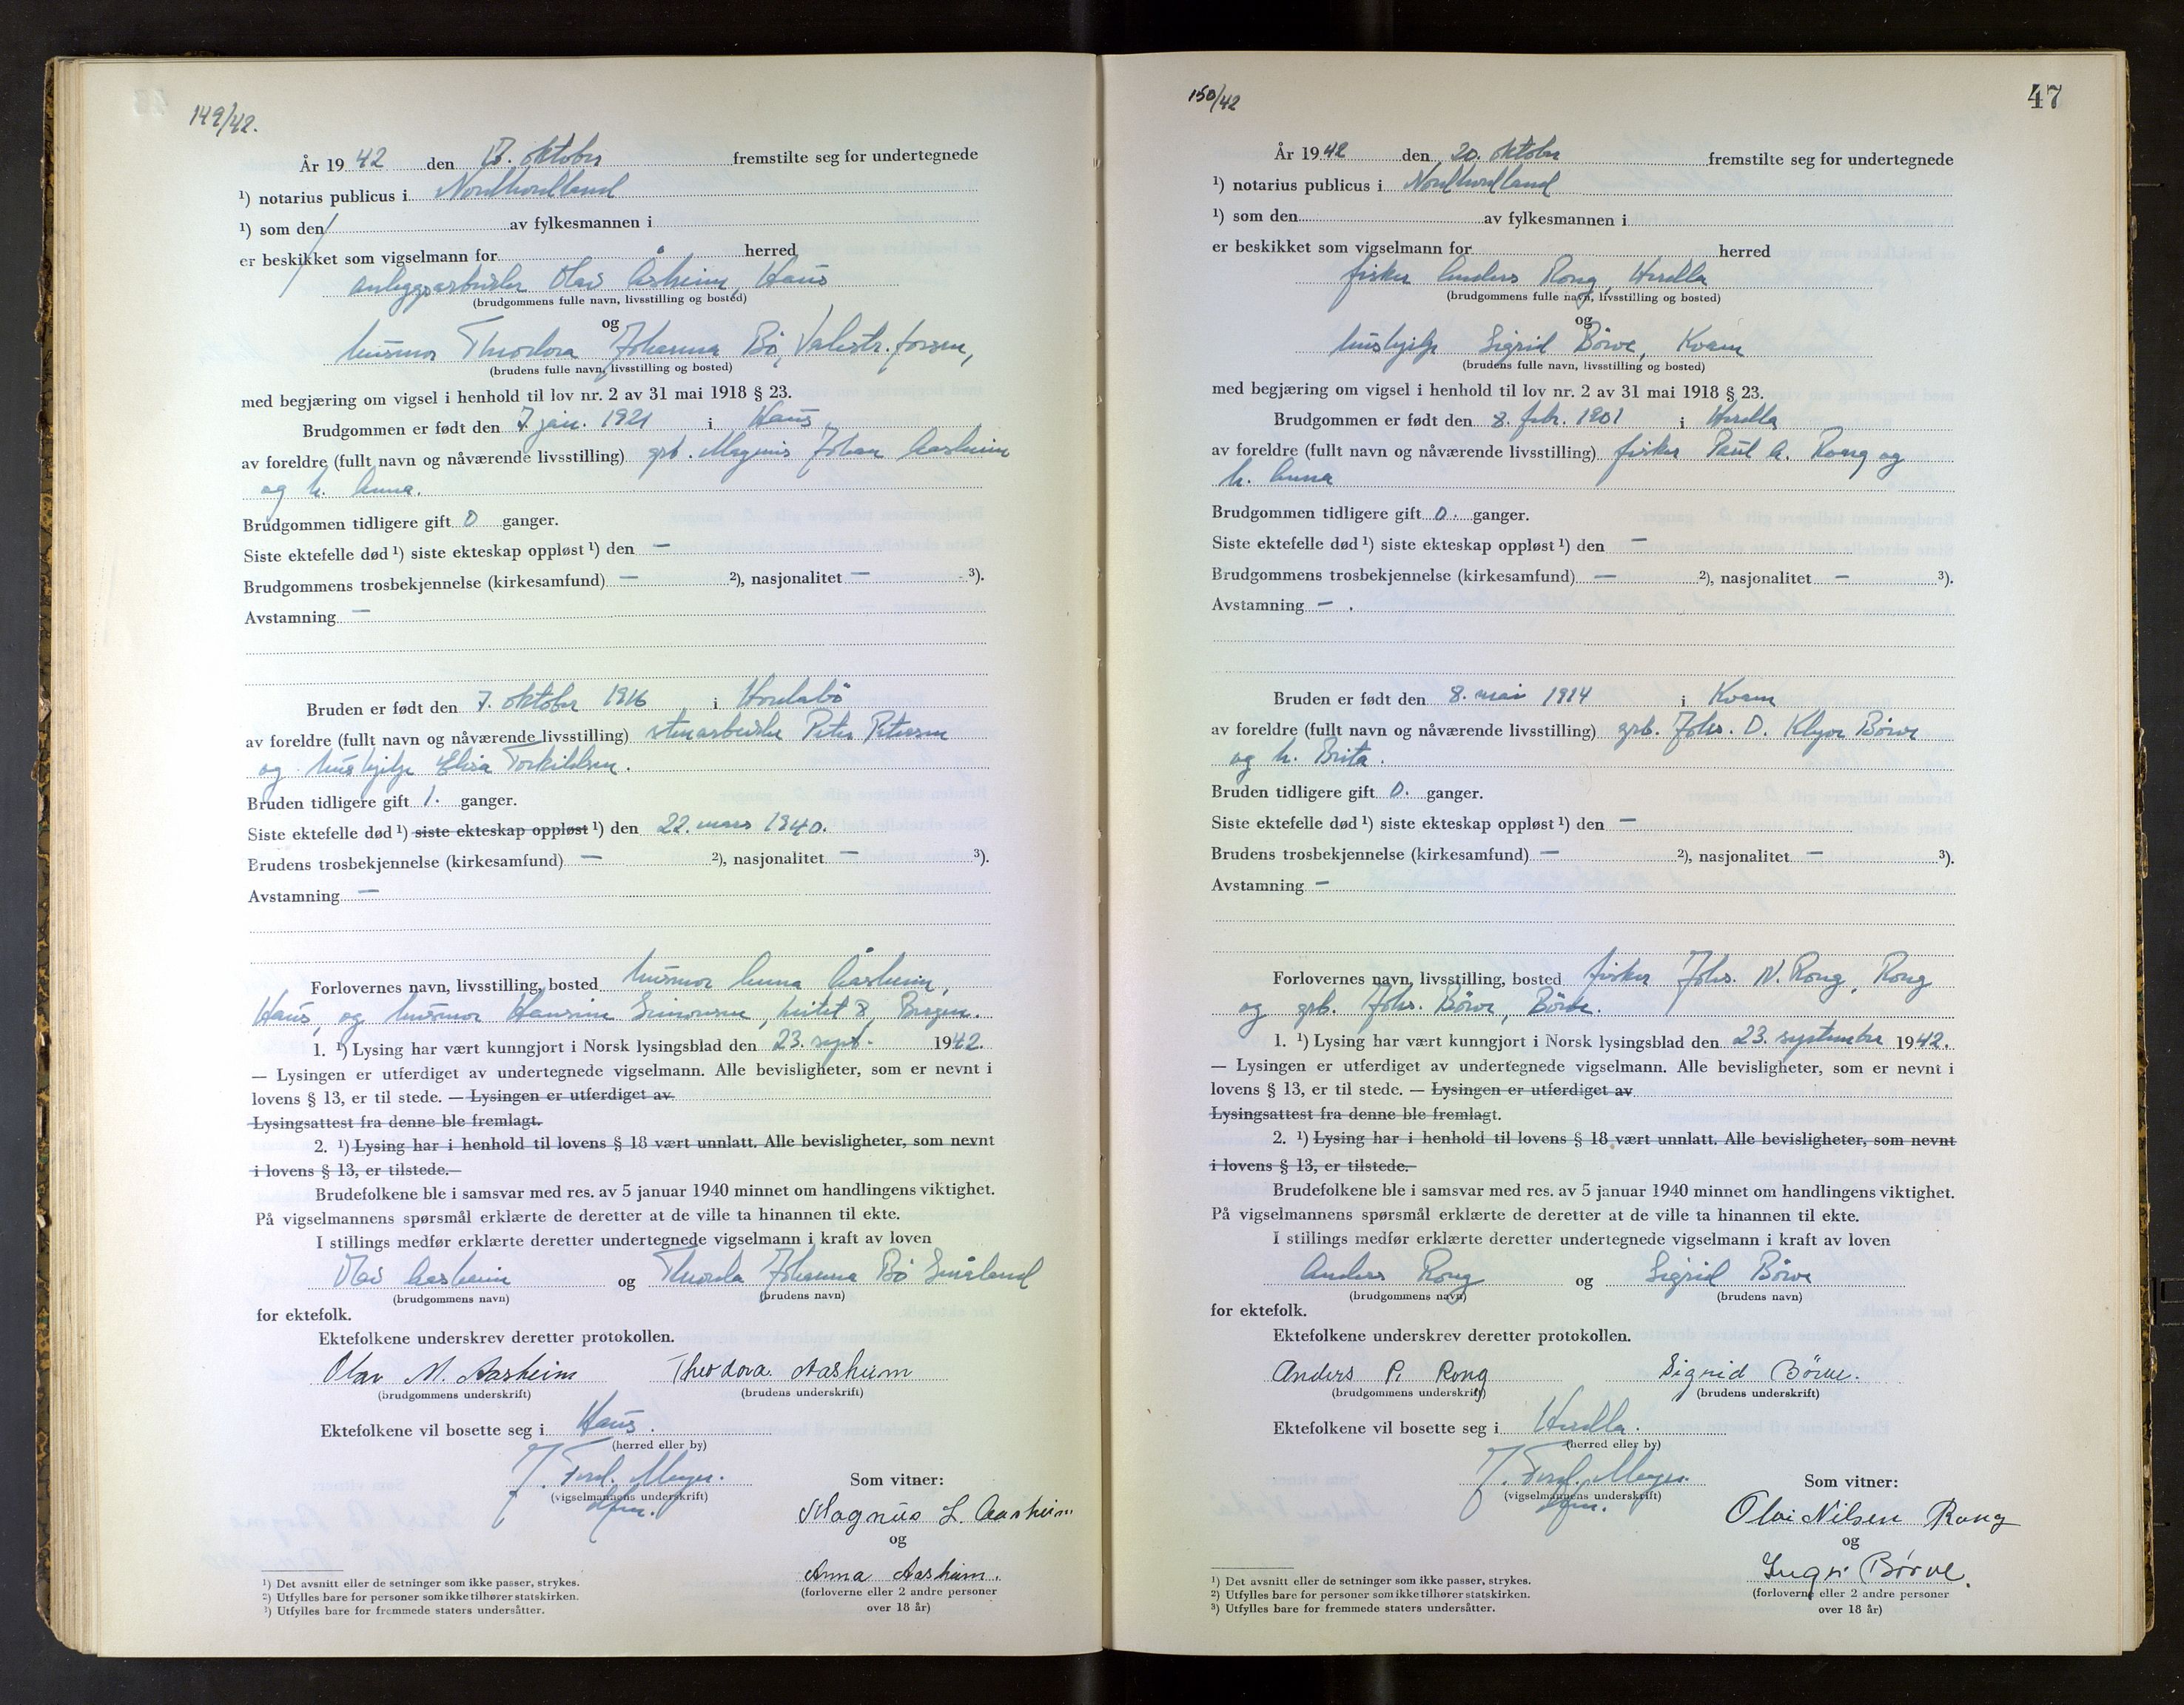 149/42.
År 1942 den 17. oktober fremstilte seg for undertegnede
¹) notarius publicus i Nordhordland
¹) som den av fylkesmannen i
er beskikket som vigselmann for herred
anleggsarbeider Olav Åsheim, Haus
(brudgommens fulle navn, livsstilling og bosted)
og
husmor Theodora Johanna Bö, Valestr.fossen,
(brudens fulle navn, livsstilling og bosted)
med begjæring om vigsel i henhold til lov nr. 2 av 31 mai 1918 § 23.
Brudgommen er født den 7. jan. 1921 i Haus
av foreldre (fullt navn og nåværende livsstilling) grb. Magnus Johan Aasheim
og h. Anna.
Brudgommen tidligere gift 0 ganger.
Siste ektefelle død ¹) siste ekteskap oppløst ¹) den —
Brudgommens trosbekjennelse (kirkesamfund) — ²), nasjonalitet — ³).
Avstamning —
Bruden er født den 7. oktober 1916 i Hordabö
av foreldre (fullt navn og nåværende livsstilling) stenarbeider Peter Petersen
og hushjelp Elisa Torkildsen.
Bruden tidligere gift 1. ganger.
Siste ektefelle død ¹) siste ekteskap oppløst ¹) den 22. mars 1940.
Brudens trosbekjennelse (kirkesamfund) — ²), nasjonalitet — ³).
Avstamning —
Forlovernes navn, livsstilling, bosted husmor Anna Åasheim,
Haus, og husmor Simonsen, 8, Bergen.
1. ¹) Lysing har vært kunngjort i Norsk lysingsblad den 23. sept. 1942.
— Lysingen er utferdiget av undertegnede vigselmann. Alle bevisligheter, som er nevnt i
lovens § 13, er til stede. — Lysingen er utferdiget av
Lysingsattest fra denne ble fremlagt.
2. ¹) Lysing har i henhold til lovens § 18 vært unnlatt. Alle bevisligheter, som nevnt
i lovens § 13, er tilstede.—
Brudefolkene ble i samsvar med res. av 5 januar 1940 minnet om handlingens viktighet.
På vigselmannens spørsmål erklærte de deretter at de ville ta hinannen til ekte.
I stillings medfør erklærte deretter undertegnede vigselmann i kraft av loven
Olav Aasheim og Theodora Johanna Bö Småland
(brudgommens navn) (brudens navn)
for ektefolk.
Ektefolkene underskrev deretter protokollen.
Olav M. Aasheim Theodora Aasheim
(brudgommens underskrift) (brudens underskrift)
Ektefolkene vil bosette seg i Haus.
(herred eller by)
J. Ferd. Meyer.
(vigselmannens underskrift)
Som vitner:
Magnus L. Aasheim
og
Anna Aasheim.
(forloverne eller 2 andre personer
over 18 år)
¹) Det avsnitt eller de setninger som ikke passer, strykes.
²) Utfylles bare for personer som ikke tilhører statskirken.
³) Utfylles bare for fremmede staters undersåtter.
150/42
47
År 1942 den 20. oktober fremstilte seg for undertegnede
¹) notarius publicus i Nordhordland
¹) som den av fylkesmannen i
er beskikket som vigselmann for herred
fisker Anders Rong, Herdla
(brudgommens fulle navn, livsstilling og bosted)
og
hushjelp Sigrid Börve, Kvam
(brudens fulle navn, livsstilling og bosted)
med begjæring om vigsel i henhold til lov nr. 2 av 31 mai 1918 § 23.
Brudgommen er født den 8. febr. 1901 i Herdla
av foreldre (fullt navn og nåværende livsstilling) fisker Paul A. Rong og
h. Anna
Brudgommen tidligere gift 0. ganger.
Siste ektefelle død ¹) siste ekteskap oppløst ¹) den —
Brudgommens trosbekjennelse (kirkesamfund) — ²), nasjonalitet — ³).
Avstamning — .
Bruden er født den 8. mai 1914 i Kvam
av foreldre (fullt navn og nåværende livsstilling) grb. Johs. D. Klyve Börve
og h. Brita.
Bruden tidligere gift 0. ganger.
Siste ektefelle død ¹) siste ekteskap oppløst ¹) den —
Brudens trosbekjennelse (kirkesamfund) — ²), nasjonalitet — ³).
Avstamning —
Forlovernes navn, livsstilling, bosted fisker Johs. N. Rong, Rong
og grb. Johs. Börve, Börve.
1. ¹) Lysing har vært kunngjort i Norsk lysingsblad den 23. september 1942.
— Lysingen er utferdiget av undertegnede vigselmann. Alle bevisligheter, som er nevnt i
lovens § 13, er til stede. — Lysingen er utferdiget av
Lysingsattest fra denne ble fremlagt.
2. ¹) Lysing har i henhold til lovens § 18 vært unnlatt. Alle bevisligheter, som nevnt
i lovens § 13, er tilstede.—
Brudefolkene ble i samsvar med res. av 5 januar 1940 minnet om handlingens viktighet.
På vigselmannens spørsmål erklærte de deretter at de ville ta hinannen til ekte.
I stillings medfør erklærte deretter undertegnede vigselmann i kraft av loven
Anders Rong og Sigrid Börve
(brudgommens navn) (brudens navn)
for ektefolk.
Ektefolkene underskrev deretter protokollen.
Anders P. Rong Sigrid Börve.
(brudgommens underskrift) (brudens underskrift)
Ektefolkene vil bosette seg i Herdla.
(herred eller by)
J. Ferd. Meyer.
(vigselmannens underskrift)
Som vitner:
Olai Nilsen Rong
og
Ingri Börve.
(forloverne eller 2 andre personer
over 18 år)
¹) Det avsnitt eller de setninger som ikke passer, strykes.
²) Utfylles bare for personer som ikke tilhører statskirken.
³) Utfylles bare for fremmede staters undersåtter.